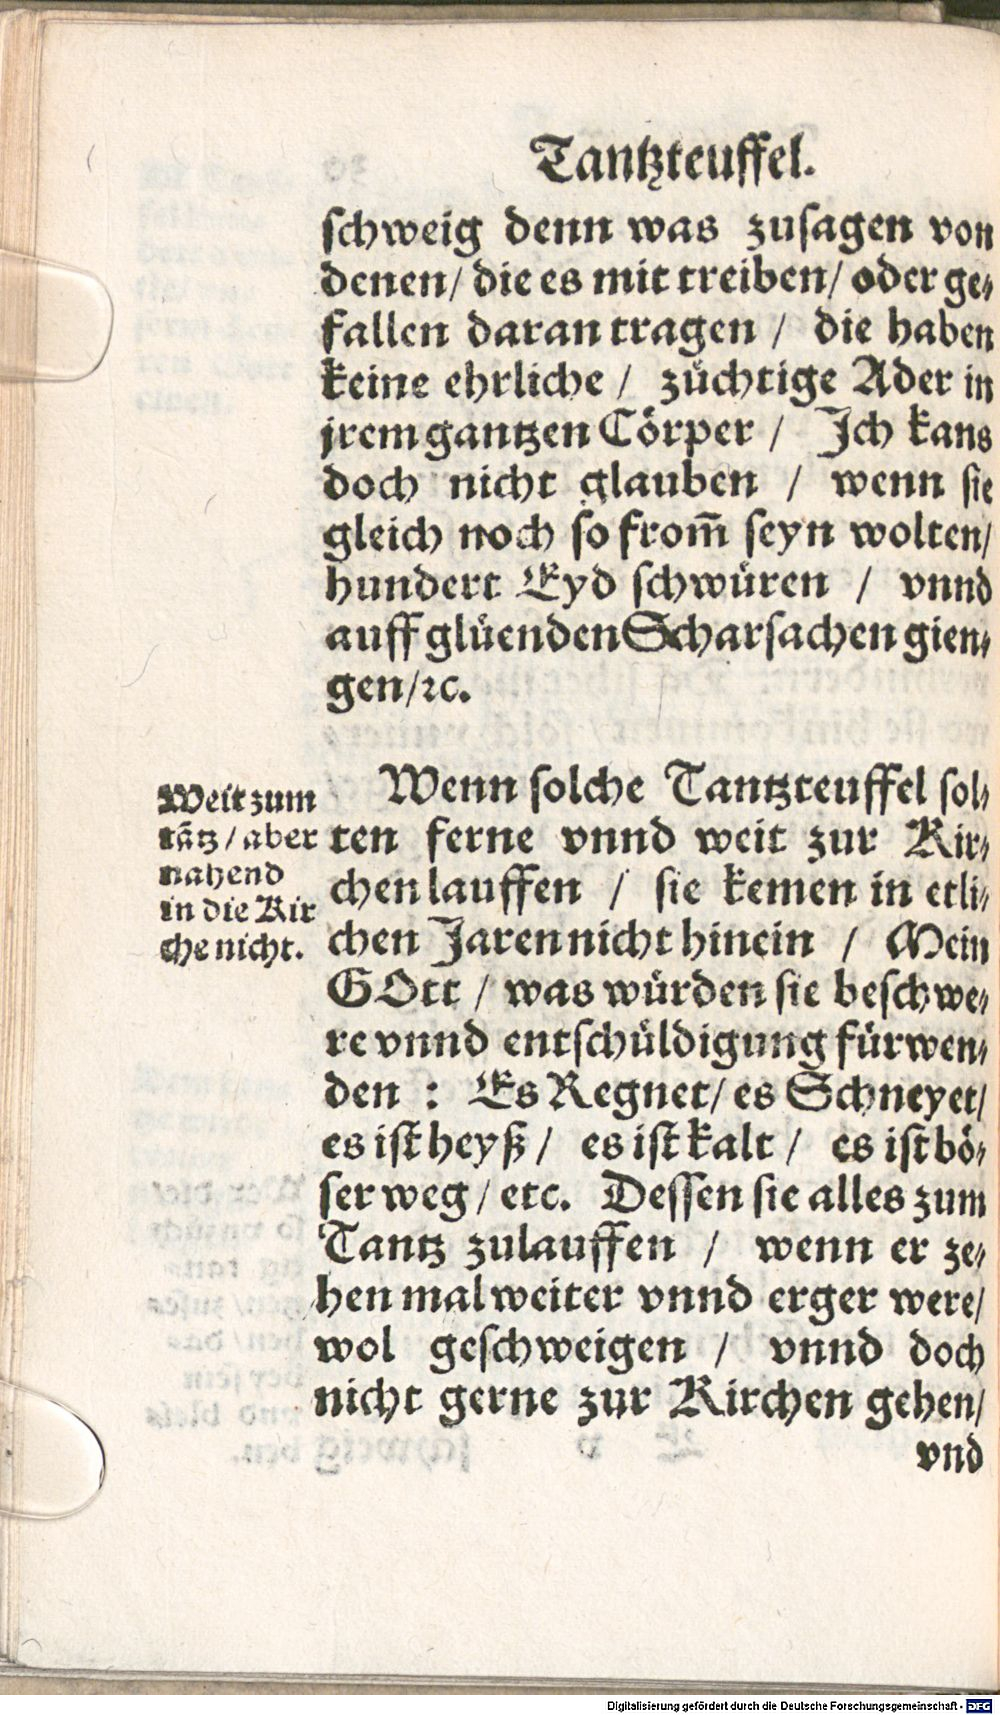 Tantzteuffel.
schweig denn was zusagen von
denen/ die es mit treiben/ oder ge⸗
fallen daran tragen / die haben
keine ehrliche / züchtige Ader in
jrem gantzen Cörper / Ich kans
doch nicht glauben / wenn sie
gleich noch so from̃ seyn wolten/
hundert Eyd schwüren / vnnd
auff glüenden Scharsachen gien⸗
gen/ꝛc.
Weit zum
tãtz / aber
nahend
in die Kir
che nicht.
Wenn solche Tantzteuffel sol⸗
ten ferne vnnd weit zur Kir⸗
chen lauffen / sie kemen in etli⸗
chen Jaren nicht hinein / Mein
GOtt / was würden sie beschwe⸗
re vnnd entschüldigung fürwen⸗
den : Es Regnet/ es Schneyet/
es ist heyß / es ist kalt / es ist bö⸗
ser weg / etc. Dessen sie alles zum
Tantz zulauffen / wenn er ze⸗
hen mal weiter vnnd erger were/
wol geschweigen / vnnd doch
nicht gerne zur Kirchen gehen/
vnd
Digitalisierung gefördert durch die Deutsche Forschungsgemeinschaft - DFG